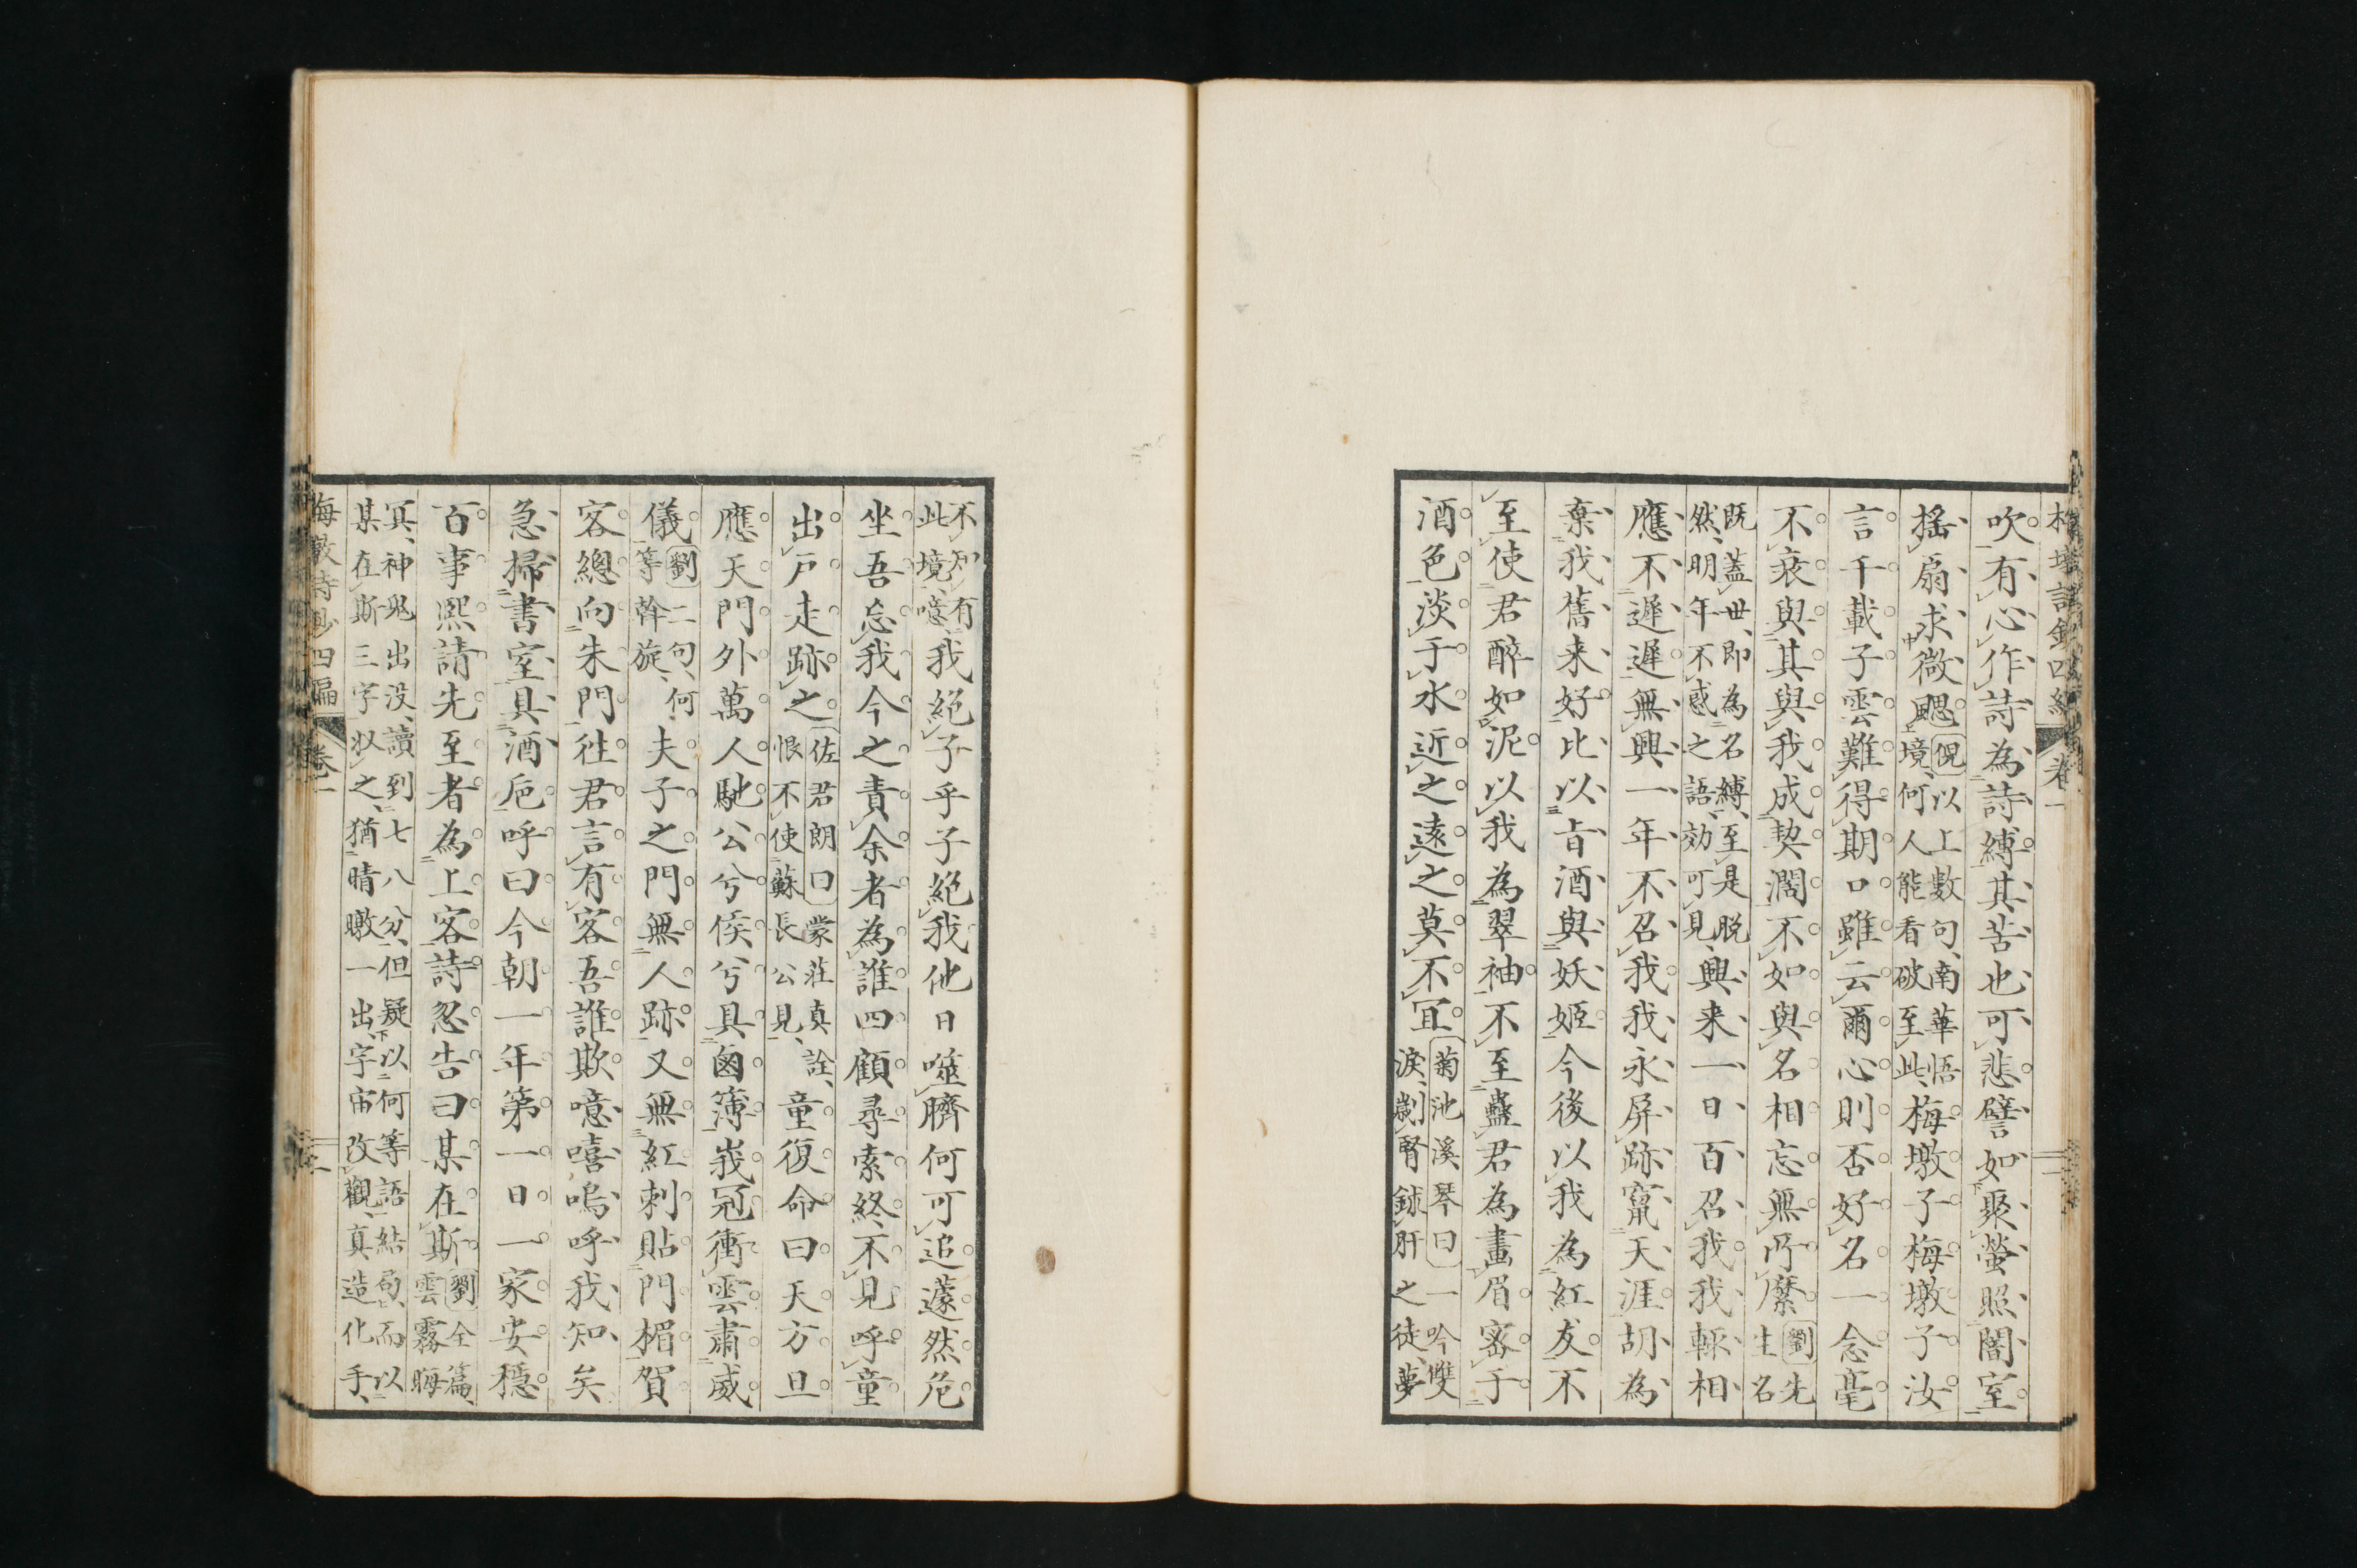 吹有心作詩為詩縛其苦也可悲譬如聚螢照闇室
搖扇求微颸倪以上數句南華悟境何人能看破至此梅墩子梅墩子汝
言千載子雲難得期口雖云爾心則否好名一念毫
不衰與其與我成契濶不如與名相忘無所縻劉先生名
既蓋世即為名縛至是脫然明年不惑之語効可見興来一日百召我我輙相
應不遲遲無興一年不召我我永屏跡竄天涯胡為
棄我舊来好比以旨酒與妖姬今後以我為紅友不
至使君醉如泥以我為翠袖不至蠱君為畫眉密于
酒色淡于水近之遠之莫不宜菊池溪琴曰一吟雙淚劌腎鉥肝之徒夢
不知有此境噫我絕子乎子絕我他日噬臍何可追蘧然危
坐吾忘我今之責余者為誰四顧尋索終不見呼童
出戶走跡之佐君朗曰蒙莊真詮恨不使蘇長公見童復命曰天方旦
應天門外萬人馳公兮侯兮具鹵簿峩冠衝雲肅威
儀劉二句何等斡旋夫子之門無人跡又無紅刺貼門楣賀
客總向朱門徃君言有客吾誰欺噫嘻嗚呼我知矣
急掃書室具酒卮呼曰今朝一年第一日一家安穩
百事熙請先至者為上客詩忽告曰某在斯劉全篇雲霧晦
冥神鬼出没讀到七八分但疑下以何等語結局而以某在斯三字収之猶晴暾一出宇宙改觀真造化手
梅墩詩鈔四編 卷一